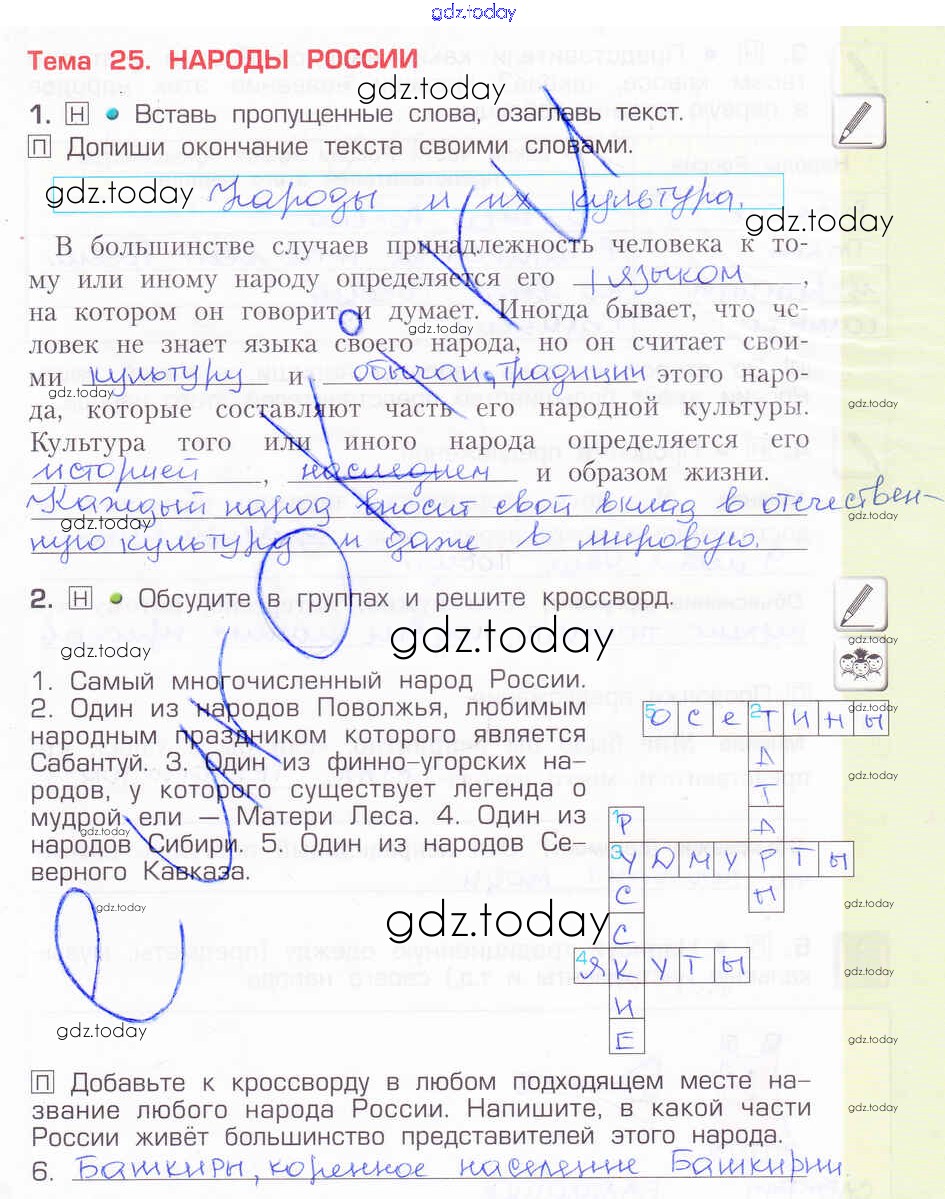 gdz.today
Тема 25. НАРОДЫ РОССИИ
gdz.today
1. Н • Вставь пропущенные слова, озаглавь текст.
П Допиши окончание текста своими словами.
gdz.today Народы и их культура.
gdz.today
В большинстве случаев принадлежность человека к то-
му или иному народу определяется его языком,
на котором он говорит и думает. Иногда бывает, что че-
gdz.today
ловек не знает языка своего народа, но он считает свои-
ми культуру и обычаи, традиции этого наро-
gdz.today
да, которые составляют часть его народной культуры.
gdz.today
Культура того или иного народа определяется его
gdz.today
историей, наследием и образом жизни.
Каждый народ вносит свой вклад в отечествен-
gdz.today
gdz.today
ную культуру и даже в мировую.
gdz.today
2. Н • Обсудите в группах и решите кроссворд.
gdz.today
gdz.today
gdz.today
1. Самый многочисленный народ России.
2. Один из народов Поволжья, любимым
народным праздником которого является
Сабантуй. 3. Один из финно-угорских на-
родов, у которого существует легенда о
мудрой ели — Матери Леса. 4. Один из
gdz.today
народов Сибири. 5. Один из народов Се-
верного Кавказа.
gdz.today
5 осетины
2 татары
gdz.today
1 русские
3 удмурты
gdz.today
4 якуты
gdz.today
gdz.today
gdz.today
gdz.today
gdz.today
gdz.today
П Добавьте к кроссворду в любом подходящем месте на-
звание любого народа России. Напишите, в какой части
gdz.today
России живёт большинство представителей этого народа.
6. Башкиры, коренное население Башкирии.
gdz.today